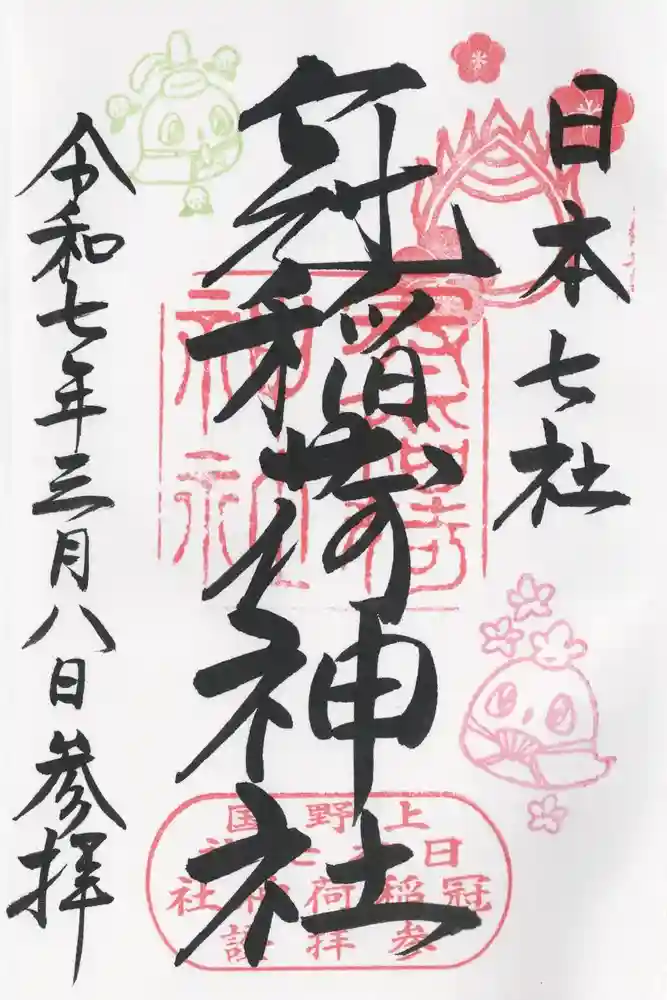 日本七社
冠稲荷神社
令和七年三月八日参拝
上野国
日本七社
冠稲荷神社